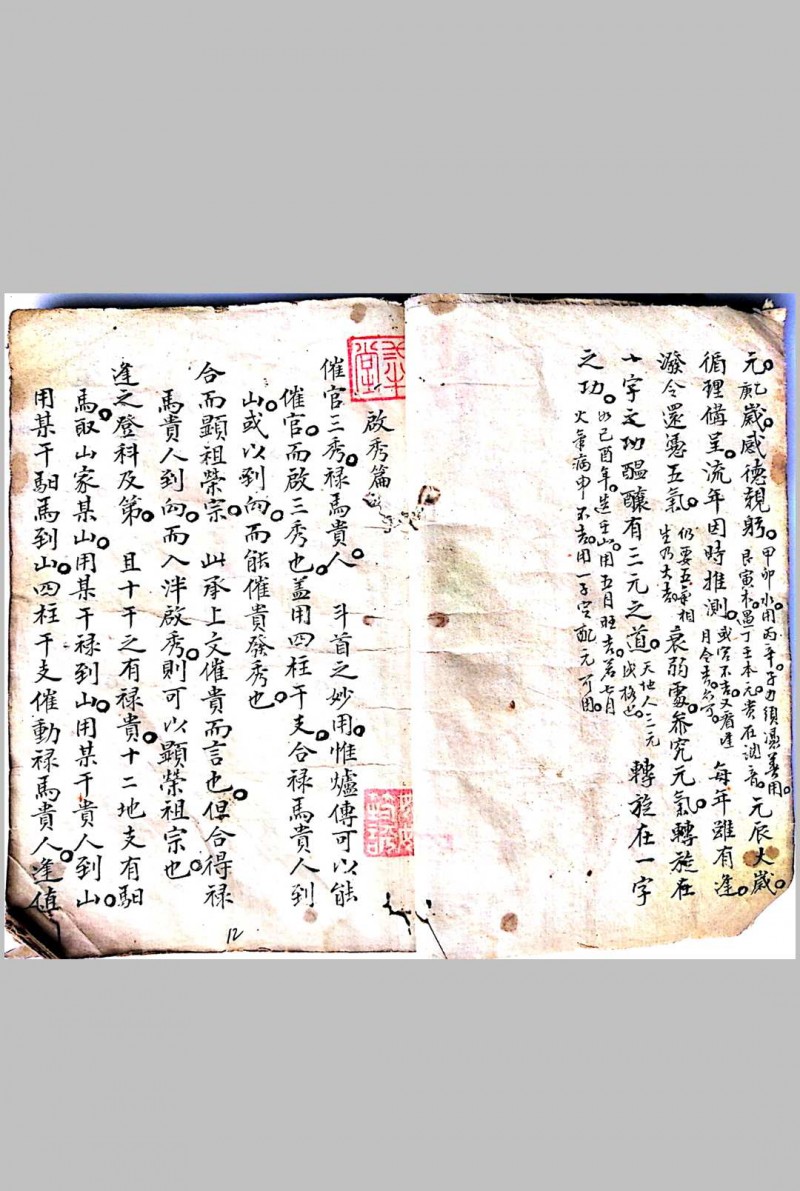 元。
歲德親躬。甲卯水用丙辛子力須憑善用。艮寅木遇丁壬本元貴在訥音。元辰大歲。
循理備呈。流年因時推測。或冥不吉又看逢月令吉亦可。每年雖有逢。
潑令還憑五氣。仍要五氣相生乃大吉。衰弱處參究元氣。轉旋在
十字之功醞釀有三元之道。天地人三元成格也。轉旋在一字
之功。如己酉年造壬山用五月旺吉若七月火氣病申不吉。用一子字配元可用。
啟秀篇
催官三秀。祿馬貴人。斗首之妙用。惟爐傳可以能
催官。而啟三秀也。蓋用四柱干支。合祿馬貴人到
山。或以到向。而能催貴發秀也。
合而顯祖榮宗。此承上文催貴而言也。但合得祿
馬貴人到向。而入泮啟秀。則可以顯榮祖宗也。
逢之登科及第。且十干之有祿貴。十二地支有馹
馬。取山家某山。用某干祿到山。用某干貴人到山。
用某干馹馬到山。四柱干支催動祿馬貴人。逢值
12